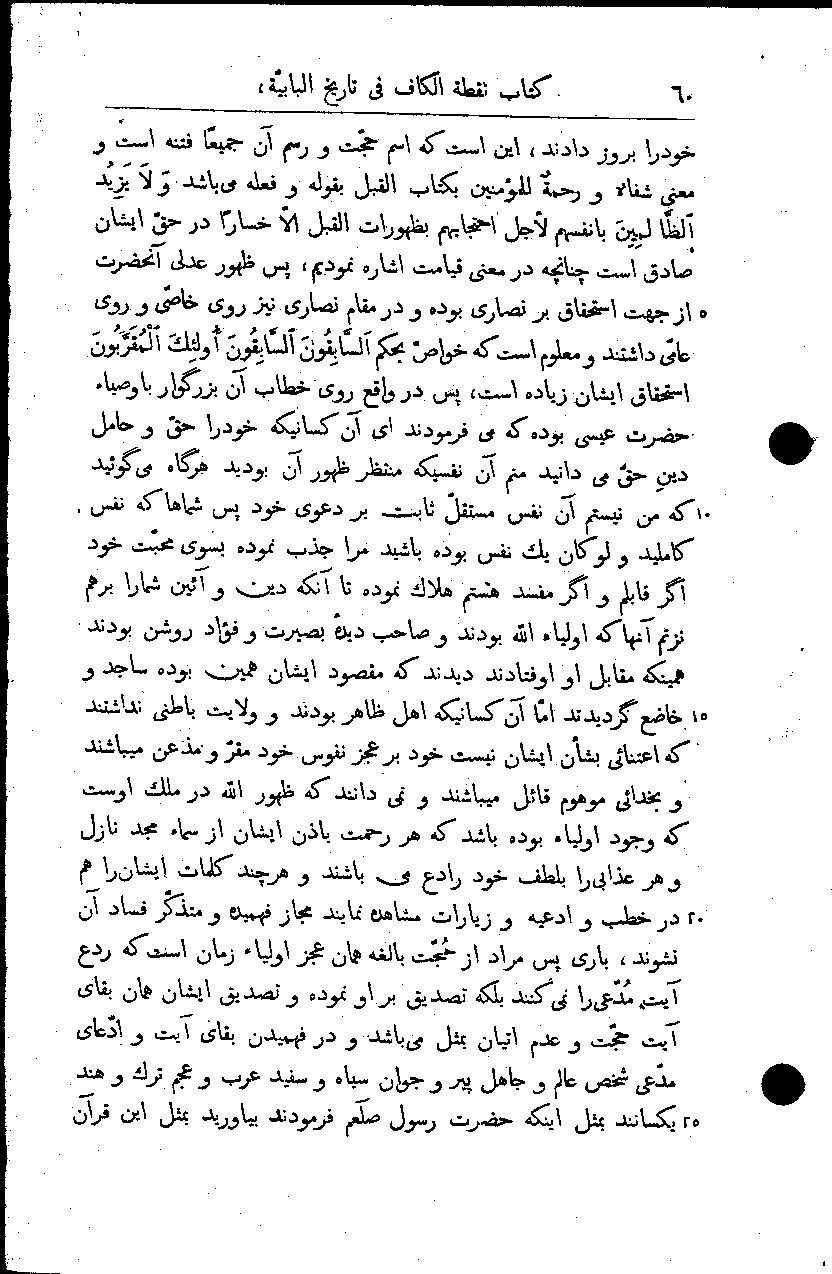 ٦٠ کتاب نقطة الکاف فی تاریخ البابیّة،
خودرا بروز دادند، این است که اسم حجّت و رسم آن جمیعًا فتنه است و
معنی شفاء و رحمةٌ للمؤمنین بکتاب القبل بقوله و فعله می‌باشد وَ لَا یَزِیدُ
ٱلظَّالِمِینَ بانفسهم لأجل احتجابهم بظهورات القبل الاّ خسارًا در حقّ ایشان
صادق است چنانچه در معنی قیامت اشاره نمودیم، پس ظهور عدلی آنحضرت
٥ از جهت استحقاق بر نصاری بوده و در مقام نصاری نیز روی خاصّی و روی
عامّی داشتند و معلوم است که خواصّ بحکم ٱلسَّابِقُونَ ٱلسَّابِقُونَ أُولٰئِكَ ٱلْمُقَرَّبُونَ
استحقاق ایشان زیاده است، پس در واقع روی خطاب آن بزرگوار باوصیاء
حضرت عیسی بوده که می فرمودند ای آن کسانیکه خودرا حقّ و حامل
دینِ حقّ می دانید منم آن نفسیکه منتظر ظهور آن بودید هرگاه می‌گوئید
١٠ که من نیستم آن نفس مستقلّ ثابت بر دعوی خود پس شماها که نفس
کاملید و لو کان یك نفس بوده باشید مرا جذب نموده بسوی محبّت خود
اگر قابلم و اگر مفسد هستم هلاك نموده تا آنکه دین و آئین شمارا برهم
نزنم آنها که اولیاء الله بودند و صاحب دیدهٔ بصیرت و فؤاد روشن بودند
همینکه مقابل او اوفتادند دیدند که مقصود ایشان همین بوده ساجد و
١٥ خاضع گردیدند امّا آن کسانیکه اهل ظاهر بودند و ولایت باطنی نداشتند
که اعتنائی بشأن ایشان نیست خود بر عجز نفوس خود مقرّ و مذعن میباشند
و بخدائی موهوم قائل میباشند و نمی دانند که ظهور الله در ملك اوست
که وجود اولیاء بوده باشد که هر رحمت باذن ایشان از سماء مجد نازل
و هر عذابی‌را بلطف خود رادع می باشند و هرچند کلمات ایشان‌را هم
٢٠ در خطب و ادعیه و زیارات مشاهده نمایند مجاز فهمیده و متذکّر فساد آن
نشوند، باری پس مراد از حُجّت بالغه همان عجز اولیاء زمان است که ردع
آیت مُدّعی‌را نمی‌کنند بلکه تصدیق بر او نموده و تصدیق ایشان همان بقای
آیت حجّت و عدم اتیان بمثل می‌باشد و در فهمیدن بقای آیت و ادّعای
مدّعی شخص عالم و جاهل پیر و جوان سیاه و سفید عرب و عجم ترك و هند
٢٥ یکسانند بمثل اینکه حضرت رسول صلّعم فرمودند بیاورید بمثل این قرآن